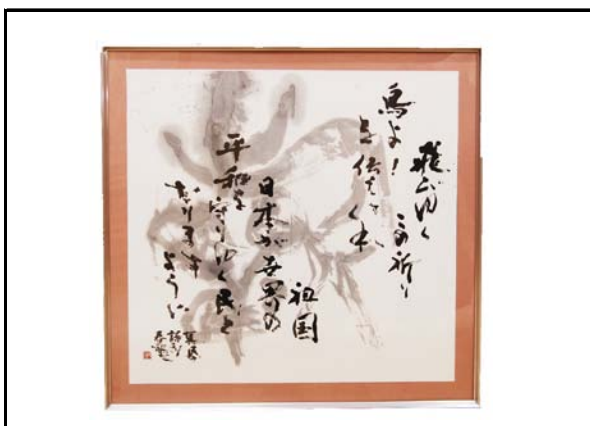 飛びゆく
鳥よ！この祈り
を伝えてくれ
祖国
日本が世界の
平和を守りゆく民と
なりますように